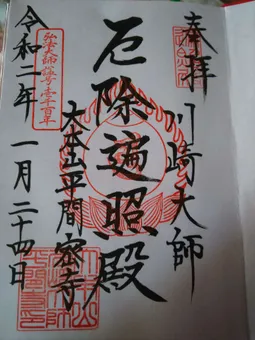 奉拝
川崎大師
厄除遍照殿
大本山平間寺
弘法大師諡号壱千百年
令和二年一月二十四日